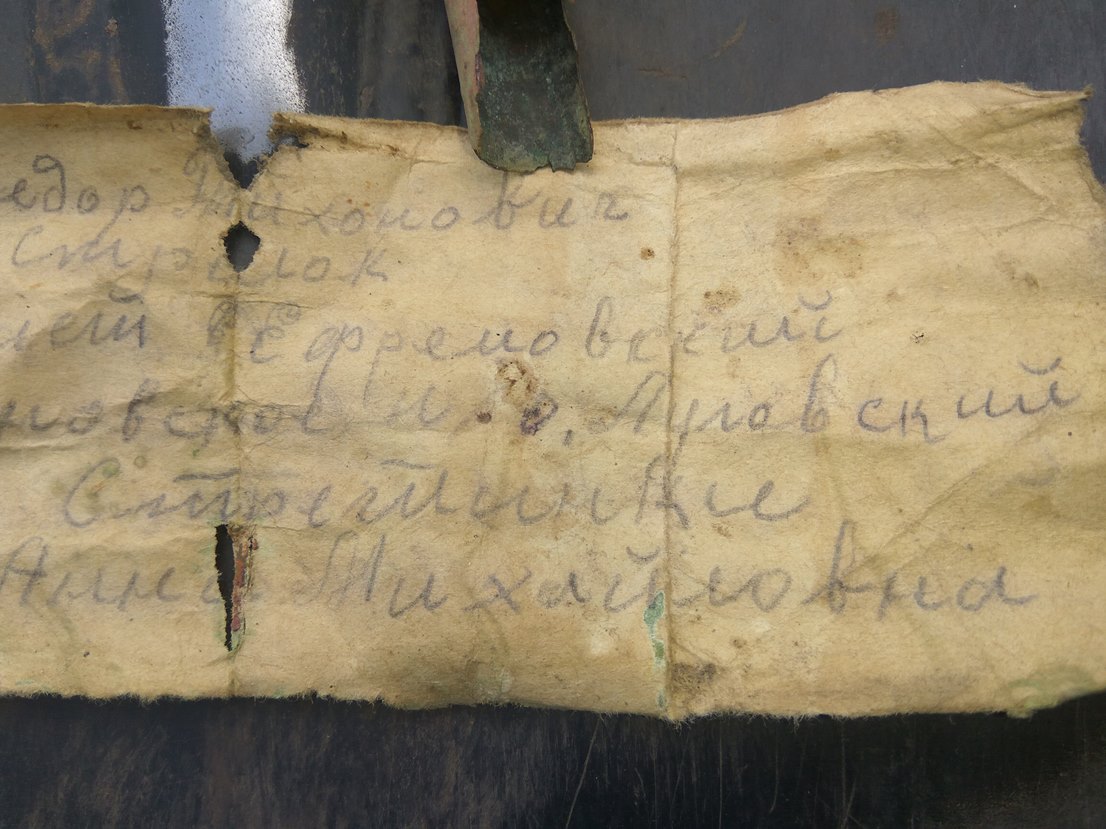 едор Тихонович
Стрилок
Ефремовский
с. о. Луговский
Стретинке
Анна Михайловна